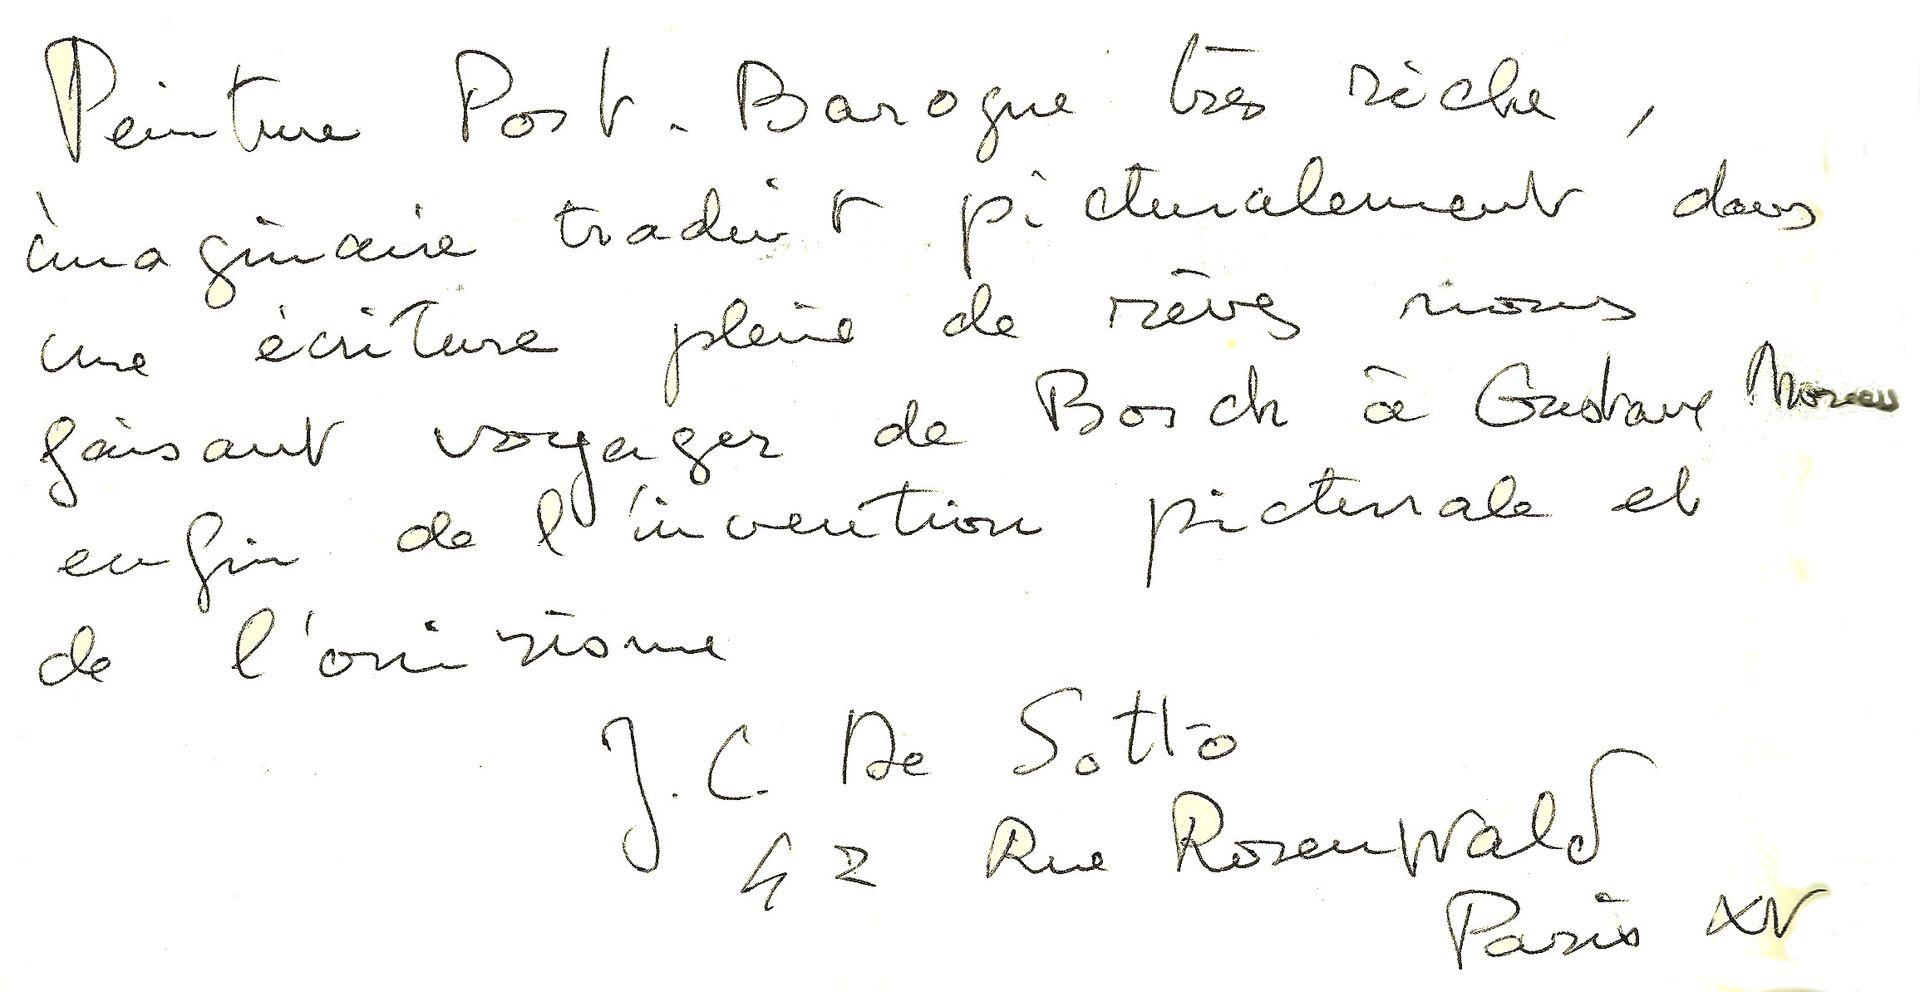 Peinture Post-Baroque très riche,
imaginaire traduit picturalement dans
une écriture pleine de rêves nous
faisant voyager de Bosch à Gustave Moreau
enfin de l'invention picturale et
de l'onirisme
J. C. De Sotto
42 Rue Rosenwald
Paris XV